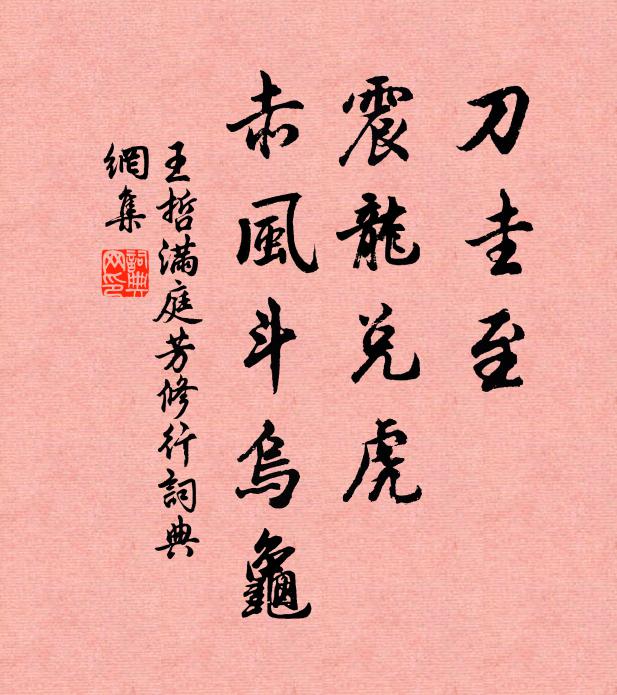 刀圭至
震龍兑虎
赤風斗烏龜
王哲滿庭芳修行詞典
網集
詞典
网印